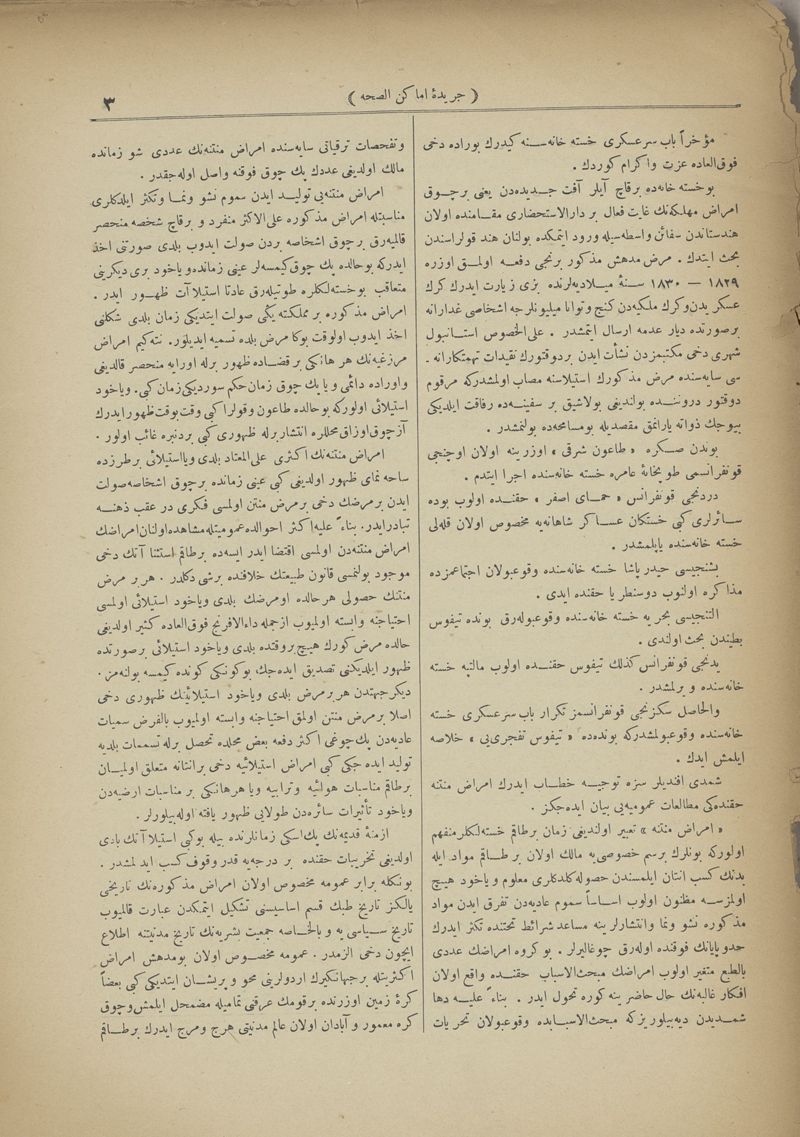 ٣
( جریدهٔ اماکن الصحه )
مؤخراً باب سرعسکری خسته خانه‌سنه کیدرك بوراده دخی
فوق‌العاده عزت واکرام کوردك .
بوخسته‌خانه‌ده برقاچ آیلر آفت جدیده‌دن یعنی برچوق
امراض مهلکه‌نك غایت فعال بر دارالاستحضاری مقامنده اولان
هندستاندن سفائن واسطه‌سیله ورود ایتمکده بولنان هند قولراسندن
بحث ایتدك . مرض مدهش مذکور برنجی دفعه اولمق اوزره
١٨٢٩ — ١٨٣٠ سنهٔ میلادیه‌لرنده بزی زیارت ایدرك کرك
عسکریدن وکرك ملکیه‌دن کنج وتوانا میلیونلرجه اشخاصی غدارانه
برصورتده دیار عدمه ارسال ایتمشدر . علی‌الخصوص استانبول
شهری دخی مکتبمزدن نشأت ایدن بردوقتورك تقیدات تهمتکارانه ـ
سی سایه‌سنده مرض مذکورك استیلاسنه مصاب اولمشدرکه مرقوم
دوقتور دروننده بولندیغی بولاشیق بر سفینه‌ده رفاقت ایلدیکی
بیوجك ذواته یارانمق مقصدیله بومسامحه‌ده بولنمشدر .
بوندن صکره « طاعون شرقی » اوزرینه اولان اوچنجی
قونفرانسمی طوپخانهٔ عامره خسته خانه‌سنده اجرا ایتدم .
دردنجی قونفرانس « حمای اصفر » حقنده اولوب بوده
سائرلری کبی خستکان عساکر شاهانه‌یه مخصوص اولان قله‌لی
خسته خانه‌سنده یاپلمشدر .
بشنجیسی حیدر پاشا خسته خانه‌سنده وقوعبولان اجتماعمزده
مذاکره اولنوب دوسنطریا حقنده ایدی .
التنجیسی بحریه خسته خانه‌سنده وقوعبوله‌رق بونده تیفوس
بطیندن بحث اولندی .
یدنجی قونفرانس کذلك تیفوس حقنده اولوب مالتپه خسته
خانه‌سنده ویرلمشدر .
والحاصل سکزنجی قونفرانسمز تکرار باب سرعسکری خسته
خانه‌سنده وقوعبولمشدرکه بونده‌ده « تیفوس تفجری‌یی » خلاصه
ایلمش ایدك .
شمدی افندیلر سزه توجیه خطاب ایدرك امراض منتنه
حقنده‌کی مطالعات عمومیه‌یی بیان ایده‌جکز .
« امراض منتنه » تعبیر اولندیغی زمان برطاقم خسته‌لکلر منفهم
اولورکه بونلرك برسم خصوصی‌یه مالك اولان برطاقم مواد ایله
بدنك کسب انتان ایلمسندن حصوله‌کلدکلری معلوم ویاخود هیچ
اولمزسه مظنون اولوب اساساً سموم عادیه‌دن تفرق ایدن مواد
مذکوره نشو ونما وانتشارلرینه مساعد شرائط تحتنده تکثر ایدرك
حدوپایانك فوقنده اوله‌رق چوغالیرلر . بوکروه امراضك عددی
بالطبع متغیر اولوب امراضك مبحث‌الاسباب حقنده واقع اولان
افکار غالبه‌نك حال حاضرینه کوره تحول ایدر . بناءً علیه دها
شمدیدن دیه‌بیلوریزکه مبحث‌الاسبابده وقوعبولان تحریات
وتفحصات ترقیاتی سایه‌سنده امراض منتنه‌نك عددی شو زمانده
مالك اولدیغی عددك پك چوق فوقنه واصل اوله‌جقدر .
امراض منتنه‌یی تولید ایدن سموم نشو ونما وتکثر ایلدکلری
مناسبتله امراض مذکوره علی‌الاکثر منفرد و برقاچ شخصه منحصر
قالمیه‌رق برچوق اشخاصه بردن صولت ایدوب بلدی صورتنی اخذ
ایدرکه بوحالده پك چوق‌کیمسه‌لر عینی زمانده‌ویاخود بری دیکرینی
متعاقب بوخسته‌لکلره طوتیله‌رق عادتا استیلاآت ظهور ایدر .
امراض مذکوره بر مملکته یکی صولت ایتدیکی زمان بلدی شکلنی
اخذ ایدوب اولوقت بوکا مرض بلده تسمیه ایدیلور . نته‌کیم امراض
مرزغیه‌نك هر هانکی برقضاده ظهور برله اورایه منحصر قالدیغی
واوراده دائمی و یا پك چوق زمان حکم سوردیکی زمان کبی . ویاخود
استیلائی اولورکه بوحالده طاعون وقولرا کبی وقت بوقت ظهور ایدرك
آزچوق اوزاق محللره انتشار برله ظهوری کبی بردنبره غائب اولور .
امراض منتنه‌نك اکثری علی‌المعتاد بلدی ویااستیلائی برطرزده
ساحه نمای ظهور اولدیغی کبی عینی زمانده برچوق اشخاصه صولت
ایدن برمرضك دخی برمرض منتن اولمسی فکری در عقب ذهنه
تبادر ایدر . بناءً علیه اکثر احوالده عمومیتله مشاهده اولنان امراضك
امراض منتنه‌دن اولمسی اقتضا ایدر ایسه‌ده برطاقم استثنا آنك دخی
موجود بولنمسی قانون طبیعتك خلافنده برشی دکلدر . هر بر مرض
منتنك حصولی هر حالده اومرضك بلدی ویاخود استیلائی اولمسی
احتیاجنه وابسته اولمیوب ازجمله داءالافرنج فوق‌العاده کثیر اولدیغی
حالده مرض کورك هیچ‌بروقتده بلدی ویاخود استیلائی برصورتده
ظهور ایلدیکنی تصدیق ایده‌جك بوکونکی کونده کیمسه بولنه‌مز .
دیکر جهتدن هر برمرض بلدی ویاخود استیلائینك ظهوری دخی
اصلا برمرض منتن اولمق احتیاجنه وابسته اولمیوب بالفرض سمیات
عادیه‌دن پك چوغی اکثر دفعه بعض محلده تحصل برله تسممات بلدیه
تولید ایده جکی کبی امراض استیلائیه دخی برانتانه متعلق اولمیان
برطاقم مناسبات هوائیه وترابیه ویا هر هانکی بر مناسبات ارضیه‌دن
ویاخود تأثیرات سائره‌دن طولایی ظهور یافته اوله‌بیلورلر .
ازمنهٔ قدیمه‌نك پك‌اسکی زمانلرنده بیله بوکبی استیلا آنك بادی
اولدیغی تخریبات حقنده بر درجه‌یه قدر وقوف کسب ایدلمشدر .
بونکله برابر عمومه مخصوص اولان امراض مذکوره‌نك تاریخی
یالکز تاریخ طبك قسم اساسیسنی تشکیل ایتمکدن عبارت قالمیوب
تاریخ سیاسی‌یه و بالخاصه جمعیت بشریه‌نك تاریخ مدنیتنه اطلاع
ایچون دخی الزمدر . عمومه مخصوص اولان بومدهش امراض
اکثریتله برجهانکیرك اردولرینی محو وپریشان ایتدیکی کبی بعضاً
کرهٔ زمین اوزرنده برقومك عرقنی تمامیله مضمحل ایلمش‌وچوق
کره معمور وآبادان اولان عالم مدنیتی هرج ومرج ایدرك برطاقم